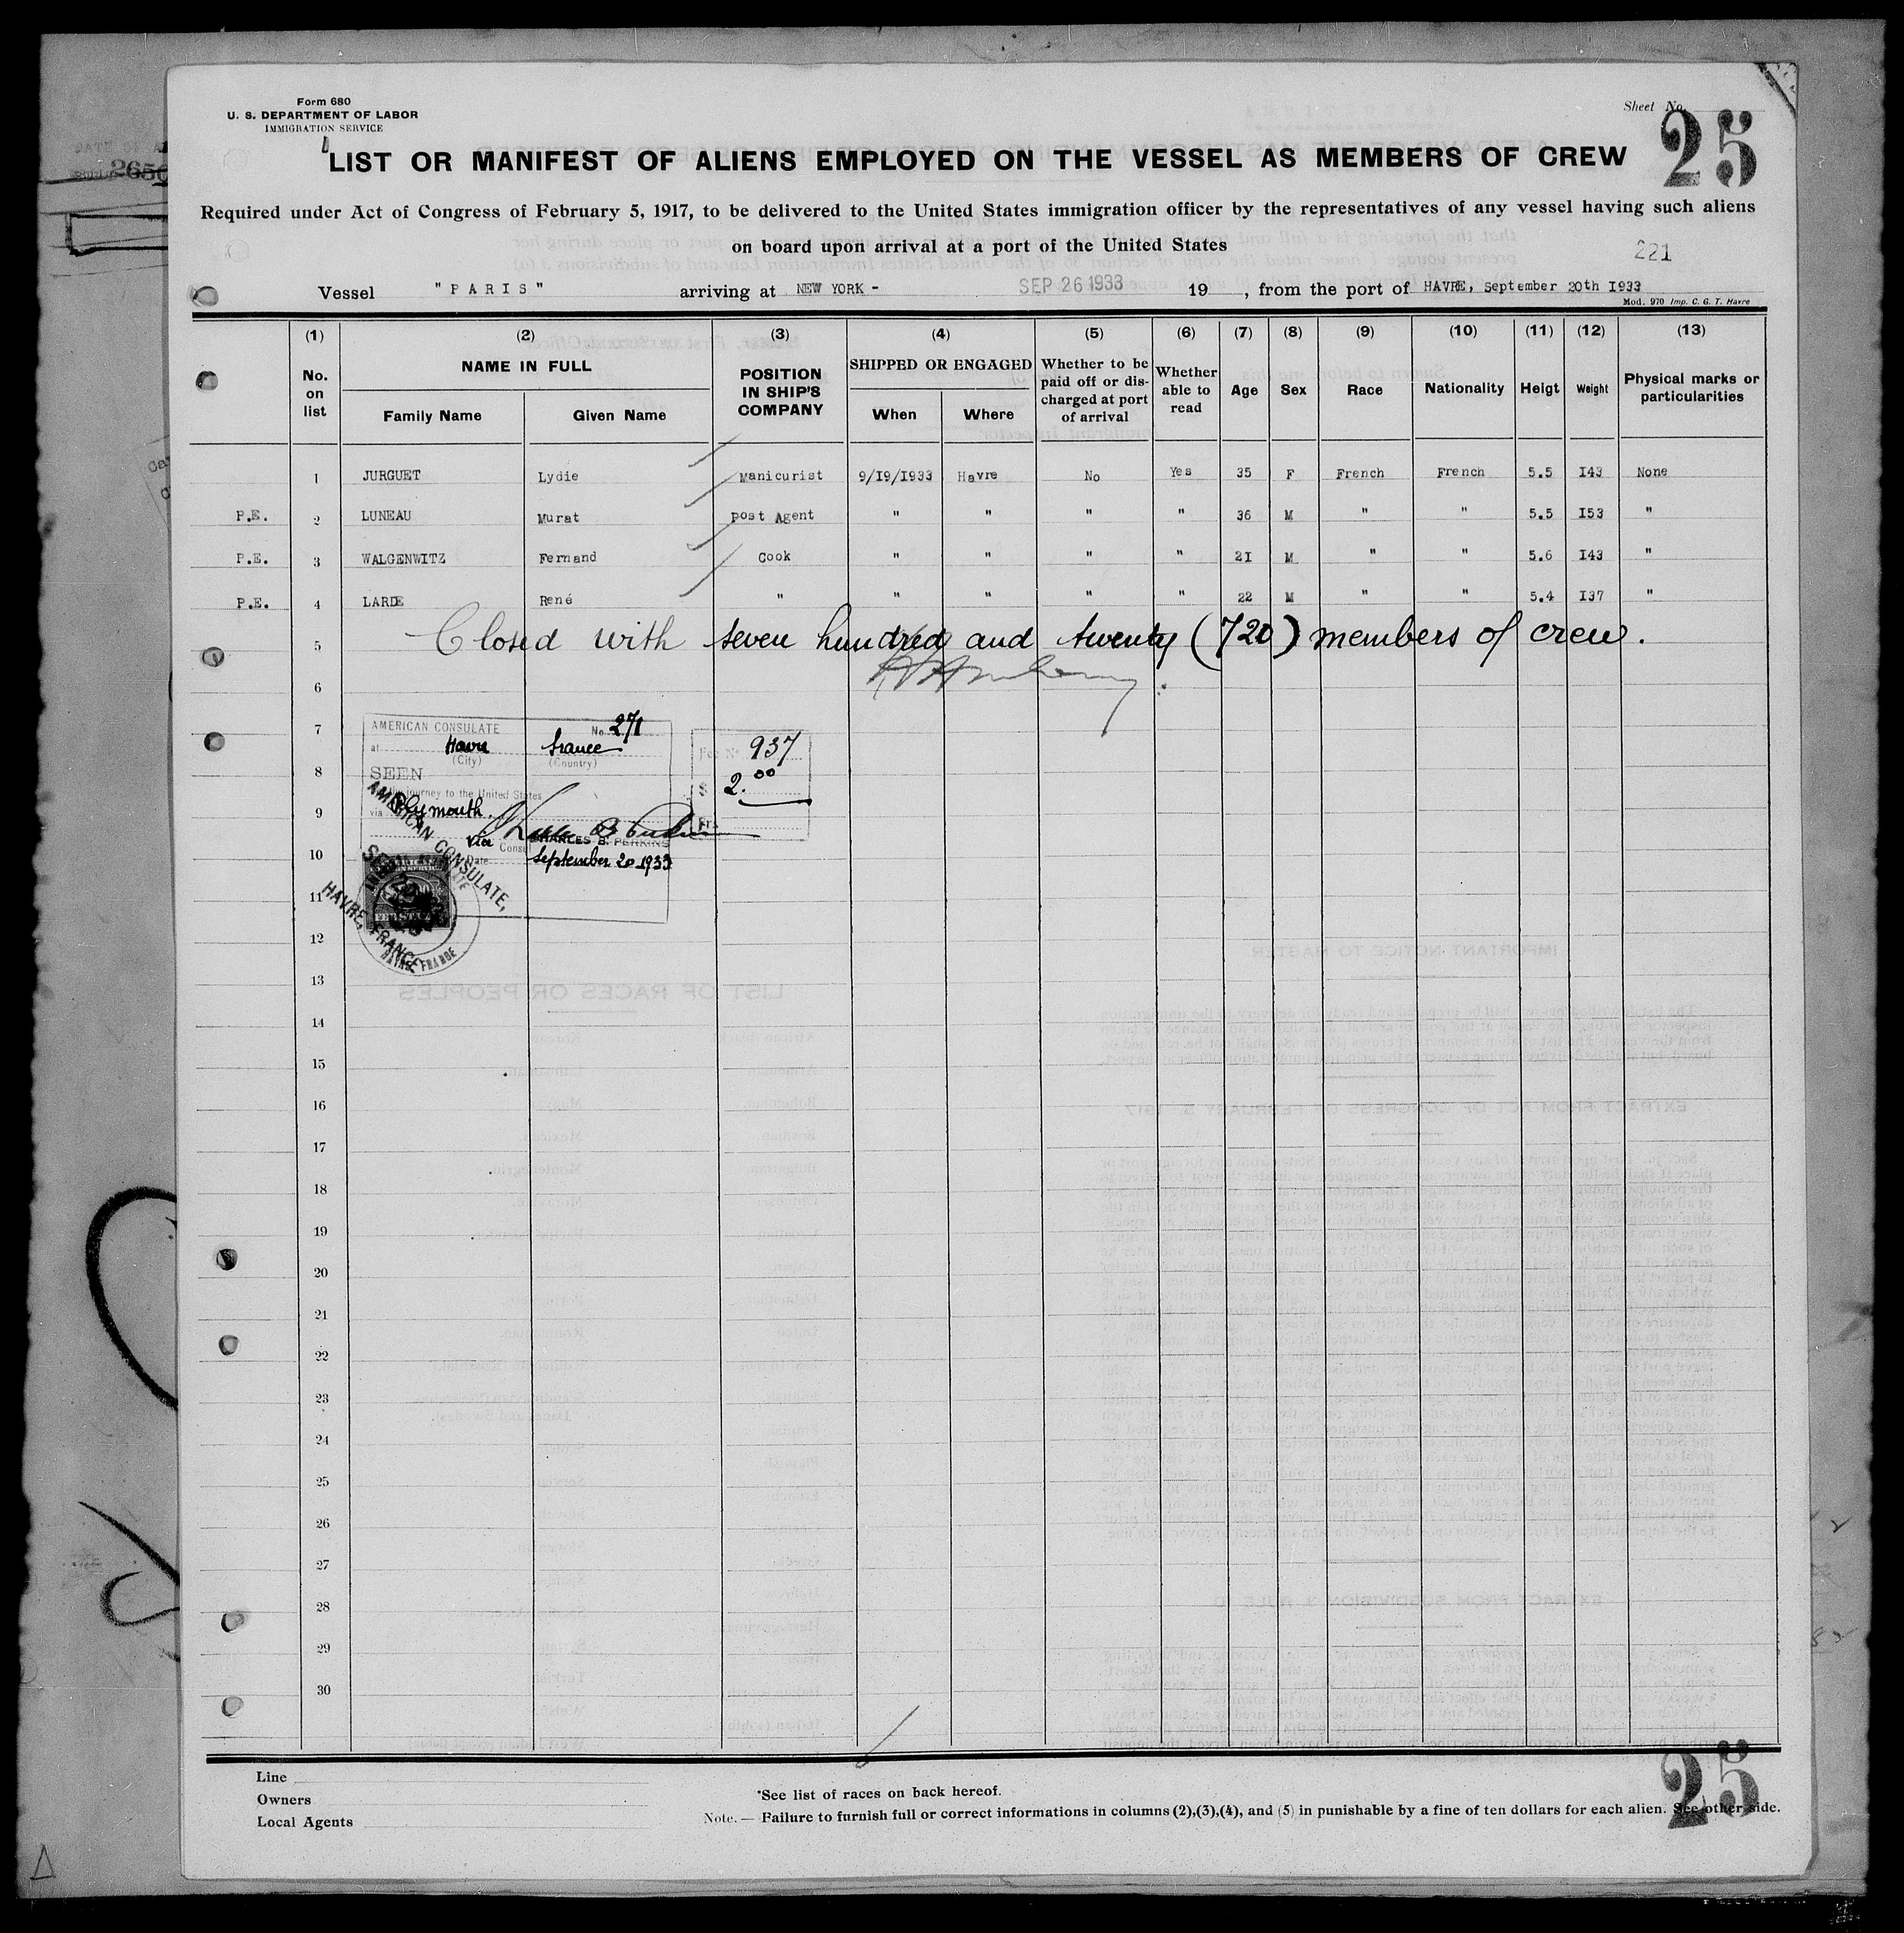 Form 680
U. S. DEPARTMENT OF LABOR
IMMIGRATION SERVICE
Sheet No. 25
LIST OR MANIFEST OF ALIENS EMPLOYED ON THE VESSEL AS MEMBERS OF CREW
Required under Act of Congress of February 5, 1917, to be delivered to the United States immigration officer by the representatives of any vessel having such aliens
on board upon arrival at a port of the United States
221
Vessel "PARIS" arriving at NEW YORK - SEP 26 1933 19 , from the port of HAVRE, September 20th I933
Mod. 970 Imp. C. G. T. Havre
(1) (2) (3) (4) (5) (6) (7) (8) (9) (10) (11) (12) (13)
No. on list NAME IN FULL Family Name Given Name POSITION IN SHIP'S COMPANY SHIPPED OR ENGAGED When Where Whether to be paid off or discharged at port of arrival Whether able to read Age Sex Race Nationality Heigt Weight Physical marks or particularities
1 JURGUET Lydie Manicurist 9/I9/I933 Havre No Yes 35 F French French 5.5 I43 None
P.E. 2 LUNEAU Murat Post Agent " " " " 36 M " " 5.5 I53 "
P.E. 3 WALGENWITZ Fernand Cook " " " " 2I M " " 5.6 I43 "
P.E. 4 LARDE René " " " " " 22 M " " 5.4 I37 "
5 Closed with seven hundred and twenty (720) members of crew.
6
7
8
9
10
11
12
13
14
15
16
17
18
19
20
21
22
23
24
25
26
27
28
29
30
AMERICAN CONSULATE No. 271
at Havre France
(City) (Country)
SEEN
journey to the United States
via Plymouth
via
CHARLES B. PERKINS
Consul
Date September 20 1933
Fee No 937
2.00
AMERICAN CONSULATE,
HAVRE, FRANCE
HAVRE FRANCE
Line
Owners
Local Agents
*See list of races on back hereof.
Note. — Failure to furnish full or correct informations in columns (2),(3),(4), and (5) in punishable by a fine of ten dollars for each alien. See other side.
25